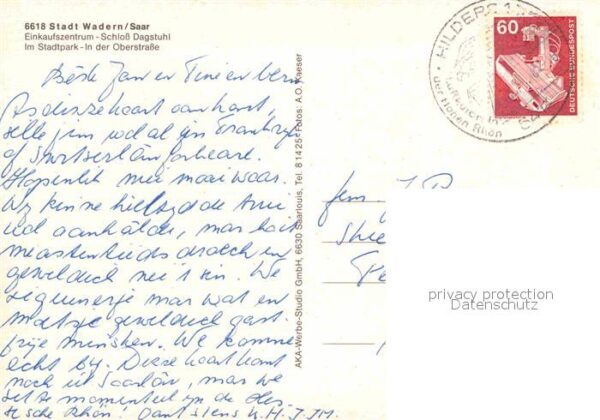 6618 Stadt Wadern/Saar
Einkaufszentrum - Schloß Dagstuhl
Im Stadtpark - In der Oberstraße
Béste Jan en Tini en bern
As dizze kaart oankomt,
sille jim wol al yn Frankryk
of Switserlân forkeare.
Hopenlik mei moai waar.
Wy kinne hieltyd de
oanhâlde, mar
meastentiids droech en
geweldich nei 't sin. We
mar wat en
moetsje geweldich gast-
frije minsken. We komme
echt by. Dizze kaart komt
noch út Saarlân, mar we
sitte momenteel yn de Hes-
sische Rhön! Oant sjens
AKA-Werbe-Studio GmbH, 6630 Saarlouis, Tel. 81425 · Fotos: A.O. Kaeser
HILDERS 1
der Hohen Rhön
60
DEUTSCHE BUNDESPOST
fem. J.
privacy protection
Datenschutz